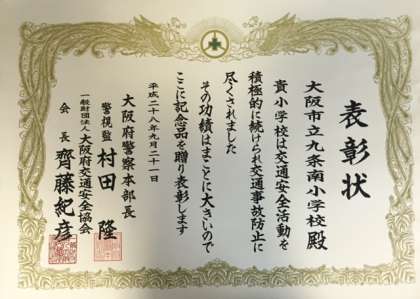 表彰状
大阪市立九条南小学校殿
貴小学校は交通安全活動を
積極的に続けられ交通事故防止に
尽くされました
その功績はまことに大きいので
ここに記念品を贈り表彰します
平成二十八年九月二十一日
大阪府警察本部長
警視監 村田 隆
一般財団法人 大阪府交通安全協会
会長 齊藤紀彦